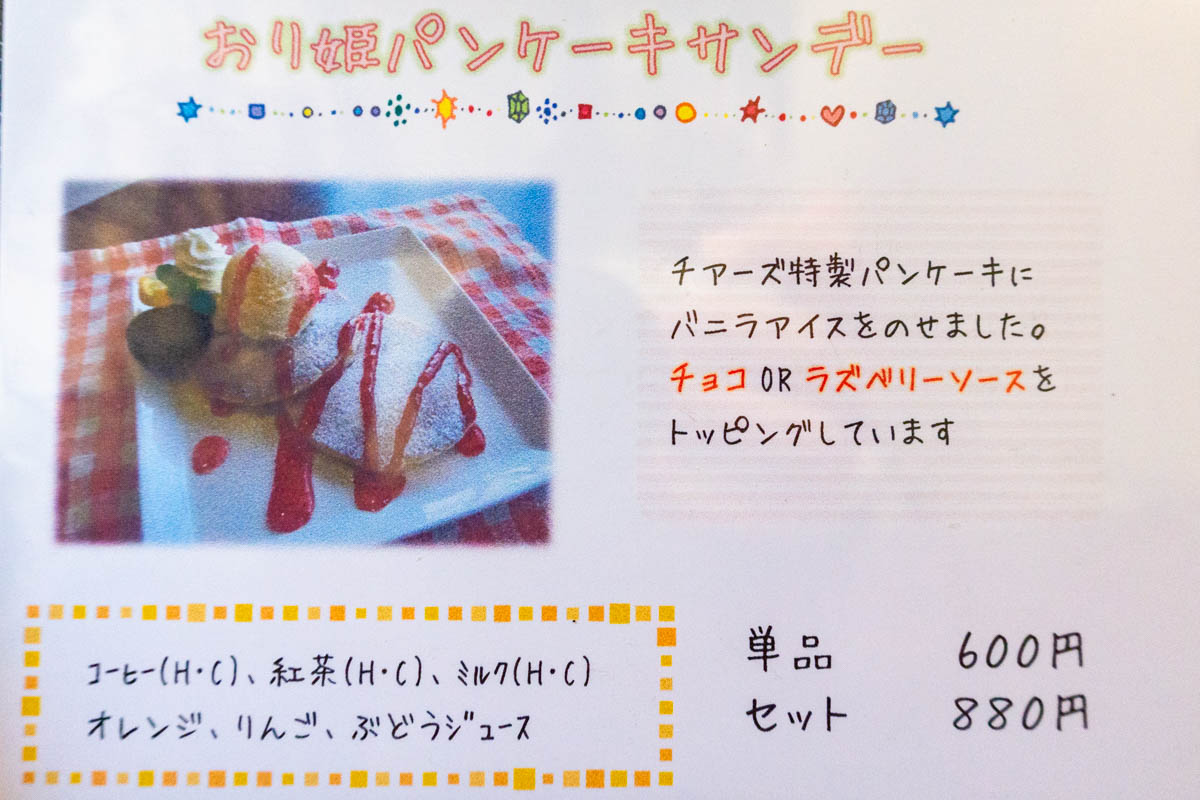 おり姫パンケーキサンデー
チアーズ特製パンケーキに
バニラアイスをのせました。
チョコ OR ラズベリーソースを
トッピングしています
コーヒー(H・C)、紅茶(H・C)、ミルク(H・C)
オレンジ、りんご、ぶどうジュース
単品 600円
セット 880円